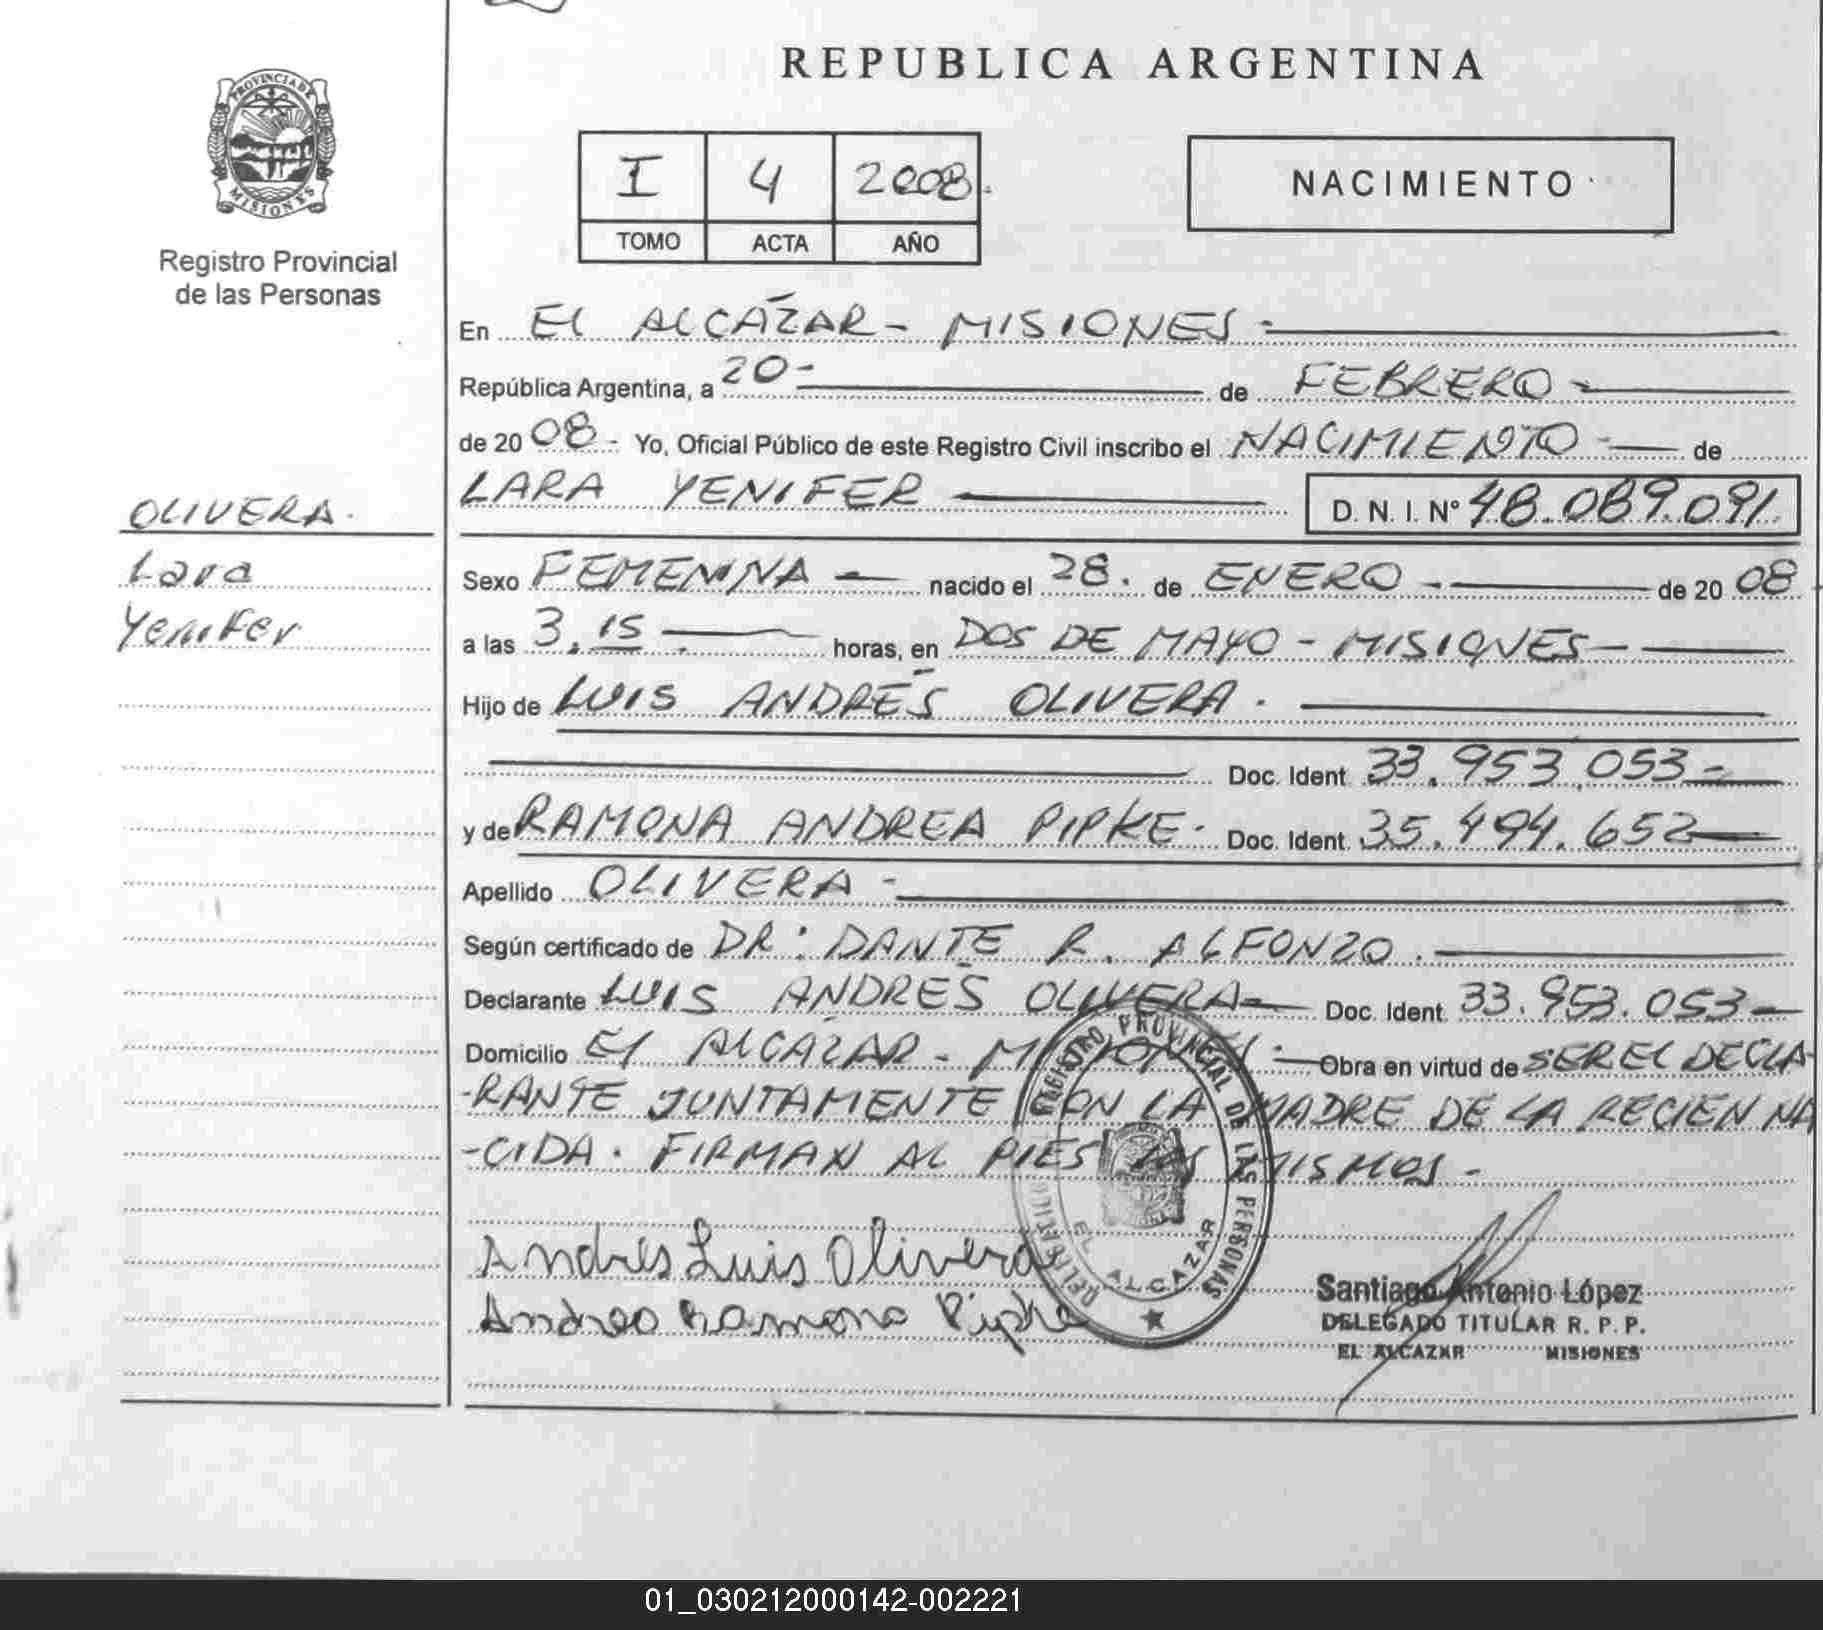 REPUBLICA ARGENTINA
PROVINCIA DE MISIONES
Registro Provincial
de las Personas
I 4 2008.
TOMO ACTA AÑO
NACIMIENTO
En EL ALCÁZAR - MISIONES -
República Argentina, a 20 - de FEBRERO -
de 20 08 - Yo, Oficial Público de este Registro Civil inscribo el NACIMIENTO - de
LARA YENIFER D. N. I. Nº 48.089.091.
OLIVERA.
Lara
Yenifer
Sexo FEMENINA - nacido el 28. de ENERO - de 20 08
a las 3.15 horas, en DOS DE MAYO - MISIONES -
Hijo de LUIS ANDRÉS OLIVERA.
Doc. Ident. 33.953.053 -
y de RAMONA ANDREA PIPKE - Doc. Ident. 35.494.652
Apellido OLIVERA -
Según certificado de DR: DANTE R. ALFONZO.
Declarante LUIS ANDRÉS OLIVERA - Doc. Ident. 33.953.053 -
Domicilio EL ALCAZAR - MISIONES - Obra en virtud de SER EL DECLA-
-RANTE JUNTAMENTE CON LA MADRE DE LA RECIEN NA
-CIDA. FIRMAN AL PIES LOS MISMOS -
REGISTRO PROVINCIAL DE LAS PERSONAS
EL ALCAZAR
Andrés Luis Olivera
Andrea Ramona Pipke
Santiago Antonio López
DELEGADO TITULAR R. P. P.
EL ALCAZAR MISIONES
01_030212000142-002221